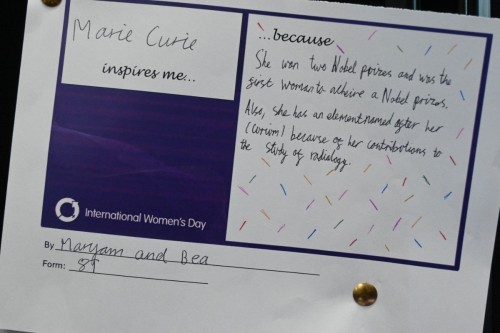 Marie Curie
inspires me...
...because
She won two Nobel prizes and was the
first woman to atheire a Nobel prizes.
Also, she has an element named after her
(curium) because of her contributions to
the study of radiology.
International Women's Day
By Maryam and Bea
Form: